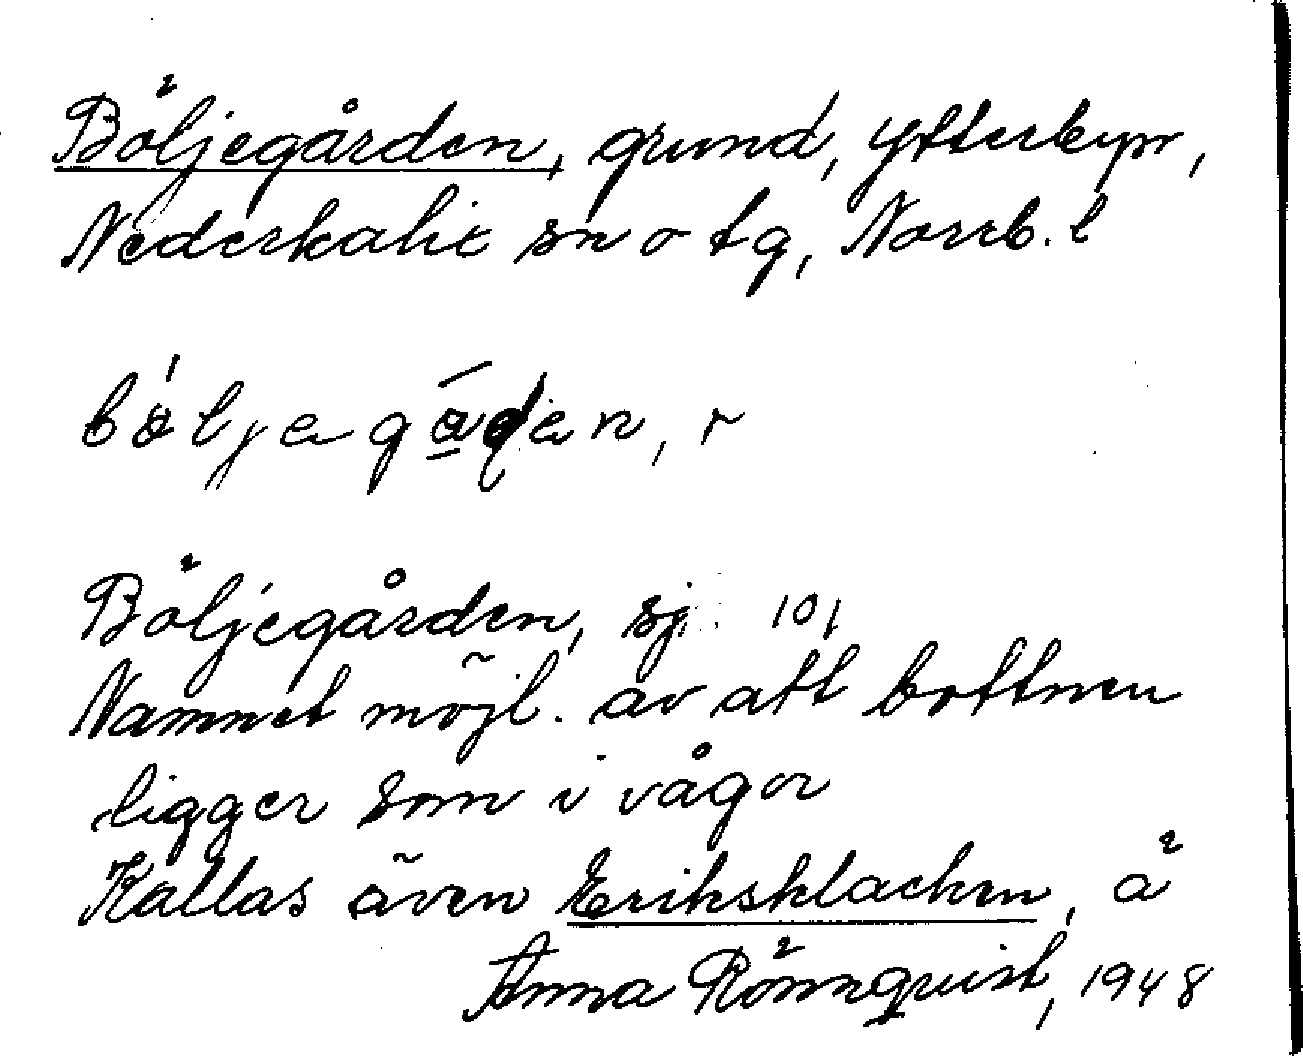 Böljegården, grund, Ytterbyn,
Nederkalix sn o tg, Norrb. l
Böljegården, sj. 101
Namnet möjl. av att bottnen
ligger som i vågor
Kallas även Eriksklacken, ä
Anna Rönnquist, 1948